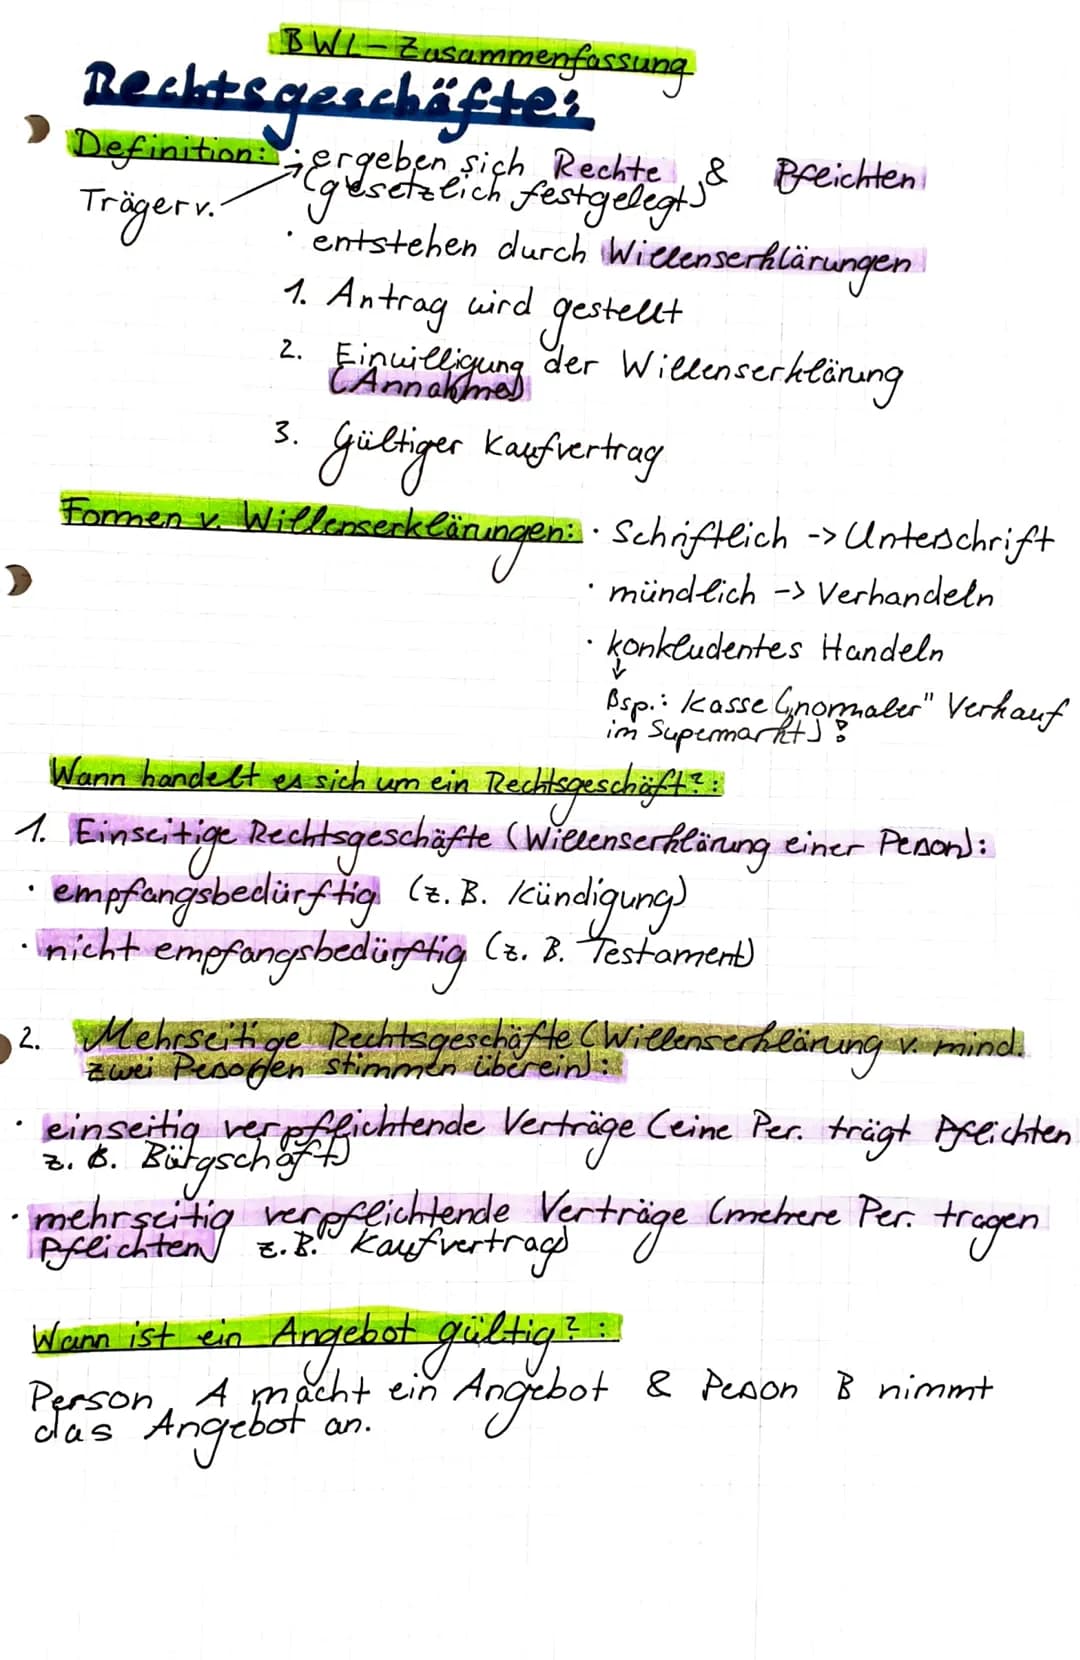 BWL-Zusammenfassung
Rechtsgeschäfte:
Definition: · ergeben sich Rechte & Pflichten
Träger v. (gesetzlich festgelegt)
· entstehen durch Willenserklärungen
1. Antrag wird gestellt
2. Einwilligung der Willenserklärung
(Annahme)
3. Gültiger Kaufvertrag
Formen v. Willenserklärungen: · Schriftlich -> Unterschrift
· mündlich -> Verhandeln
· konkludentes Handeln
↓
Bsp.: Kasse („normaler" Verkauf
im Supermarkt) !
Wann handelt es sich um ein Rechtsgeschäft?:
1. Einseitige Rechtsgeschäfte (Willenserklärung einer Person):
· empfangsbedürftig (z. B. Kündigung)
· nicht empfangsbedürftig (z. B. Testament)
2. Mehrseitige Rechtsgeschäfte (Willenserklärung v. mind.
zwei Personen stimmen überein):
· einseitig verpflichtende Verträge (eine Per. trägt Pflichten
z. B. Bürgschaft)
· mehrseitig verpflichtende Verträge (mehere Per. tragen
Pflichten) z.B. Kaufvertrag)
Wann ist ein Angebot gültig?:
Person A macht ein Angebot & Person B nimmt
das Angebot an.